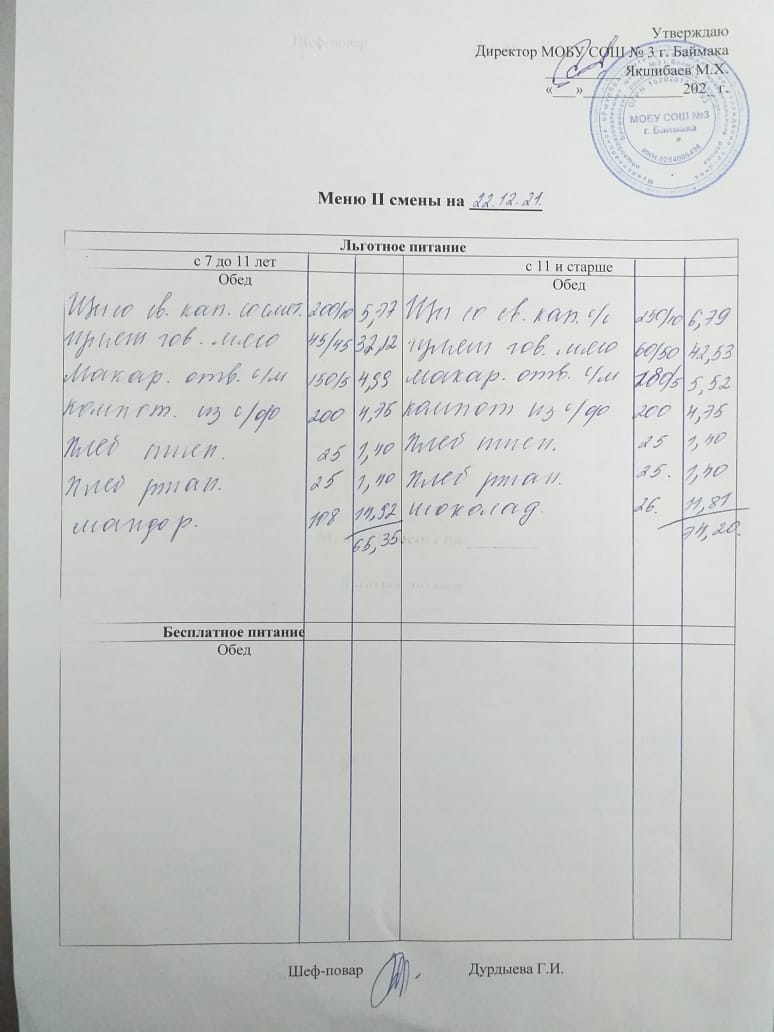 Утверждаю
Директор МОБУ СОШ № 3 г. Баймака
Якшибаев М.Х.
«___»______________202_ г.
МОБУ СОШ №3
г. Баймака
ИНН 0254005436
Меню II смены на 22.12.21.
Льготное питание
с 7 до 11 лет с 11 и старше
Обед Обед
Щи со св. кап. со смет. 200/10 5,77 Щи со св. кап. с/с 250/10 6,79
гов. мясо 45/45 32,12 гов. мясо 60/50 42,53
Макар. отв. с/м 150/5 4,99 Макар. отв. с/м 180/5 5,52
Компот. из с/ф 200 4,75 Компот из с/ф 200 4,75
Хлеб пшен. 25 1,40 Хлеб пшен. 25 1,40
Хлеб ржан. 25 1,40 Хлеб ржан. 25. 1,40
мандар. 108 14,92 шоколад. 26. 11,81
65,35. 74,20.
Бесплатное питание
Обед
Шеф-повар Дурдыева Г.И.